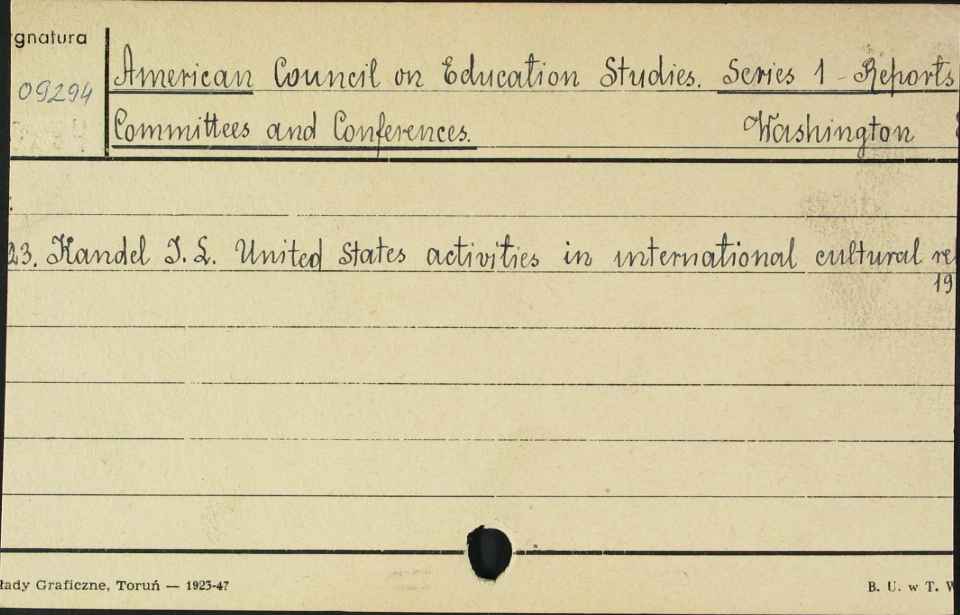 ygnatura
09294
American Council on Education Studies. Series 1 - Reports
Committees and Conferences. Washington
23. Kandel I. L. United States activities in international cultural re
19
łady Graficzne, Toruń — 1923-47
B. U. w T. W